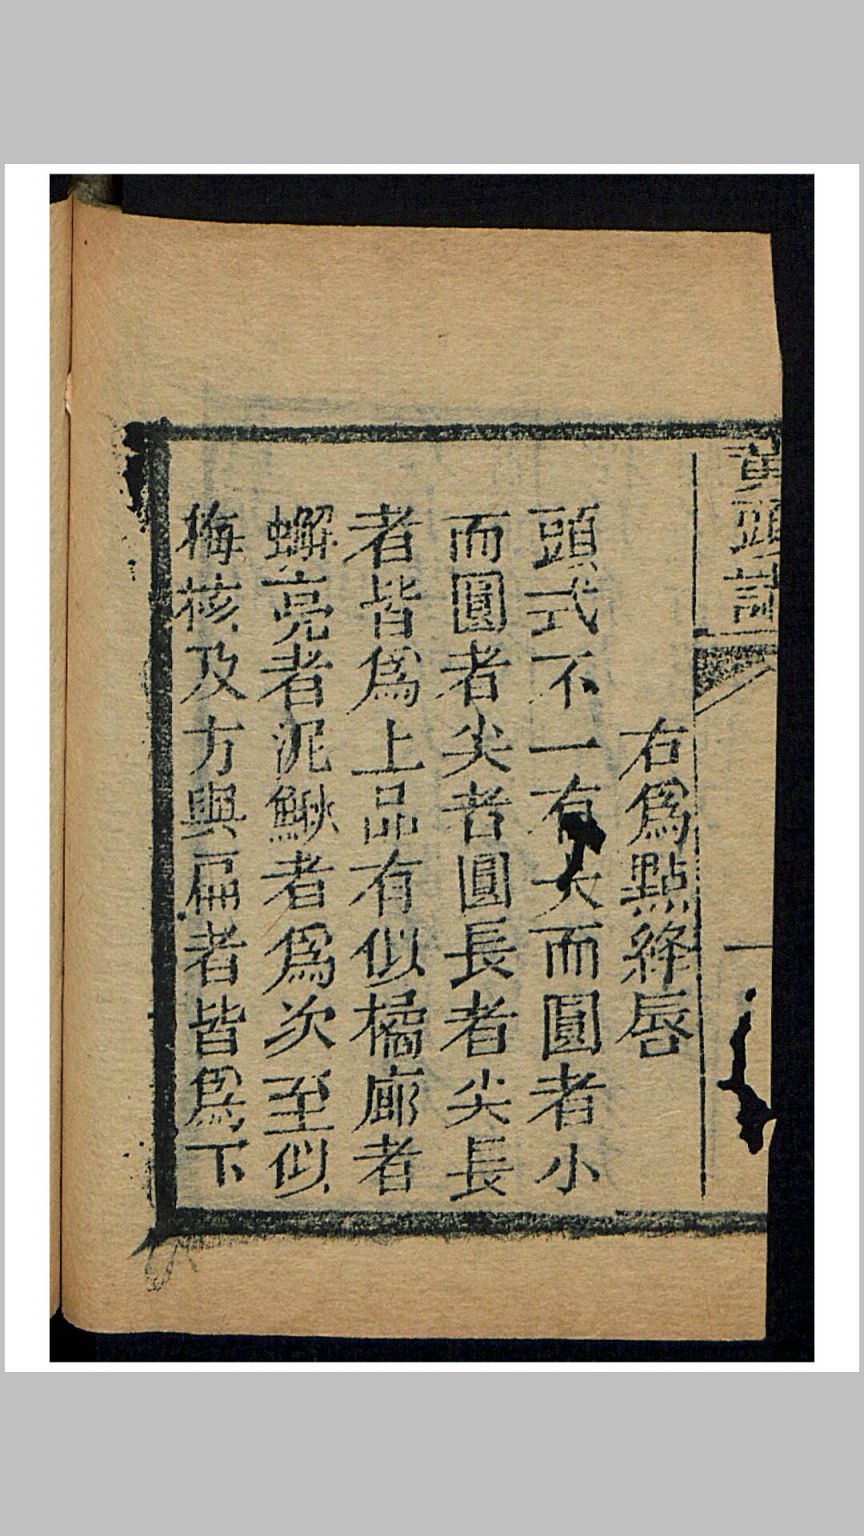 黄頭譜
一
右爲點絳唇
頭式不一有大而圓者小
而圓者尖者圓長者尖長
者皆爲上品有似橘廊者
蠏亮者泥鰍者爲次至似
梅核及方與扁者皆爲下